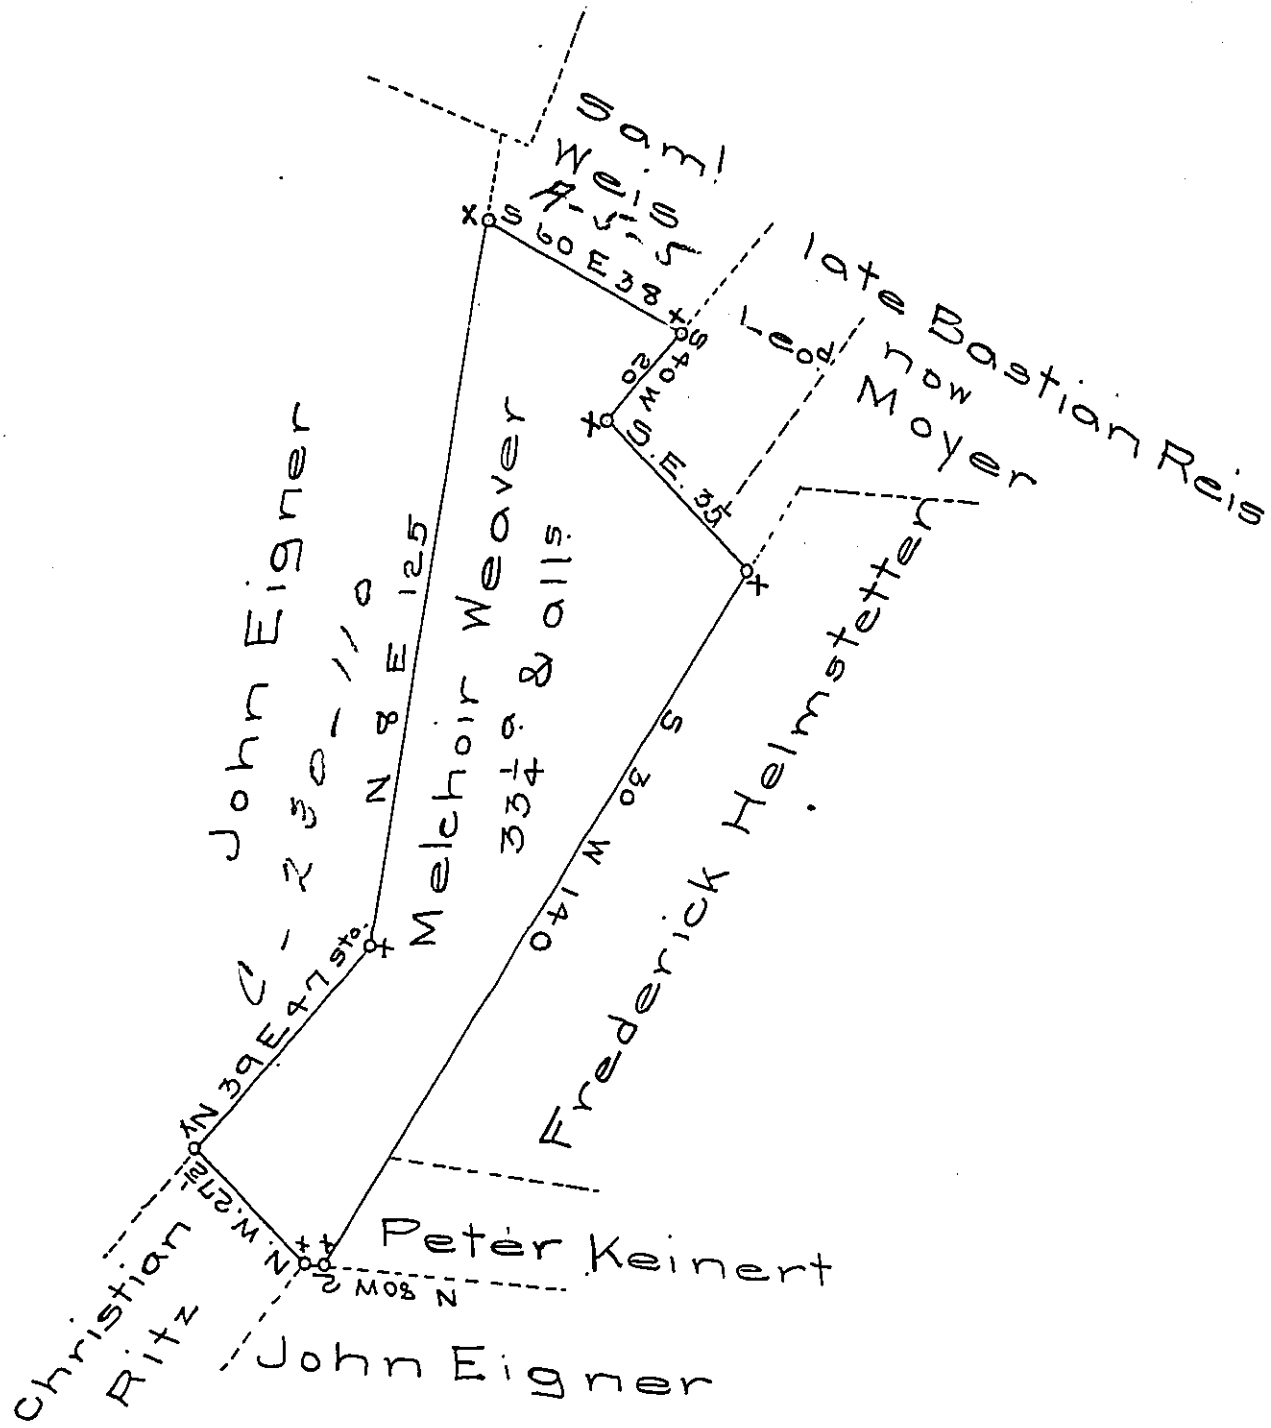 Saml
Weis
A-5-5
S 60 E 38
late Bastian Reis
now
Moyer
Leod
S 40 W
20
S.E. 35
John Eigner
C-230-110
N 8 E 125
Melchoir Weaver
33¼ a. & alls.
S 30 W 140
Frederick Helmstetter
N 39 E 47 sto.
N.W. 27½
Christian
Ritz
Peter Keinert
N 80W 2
John Eigner